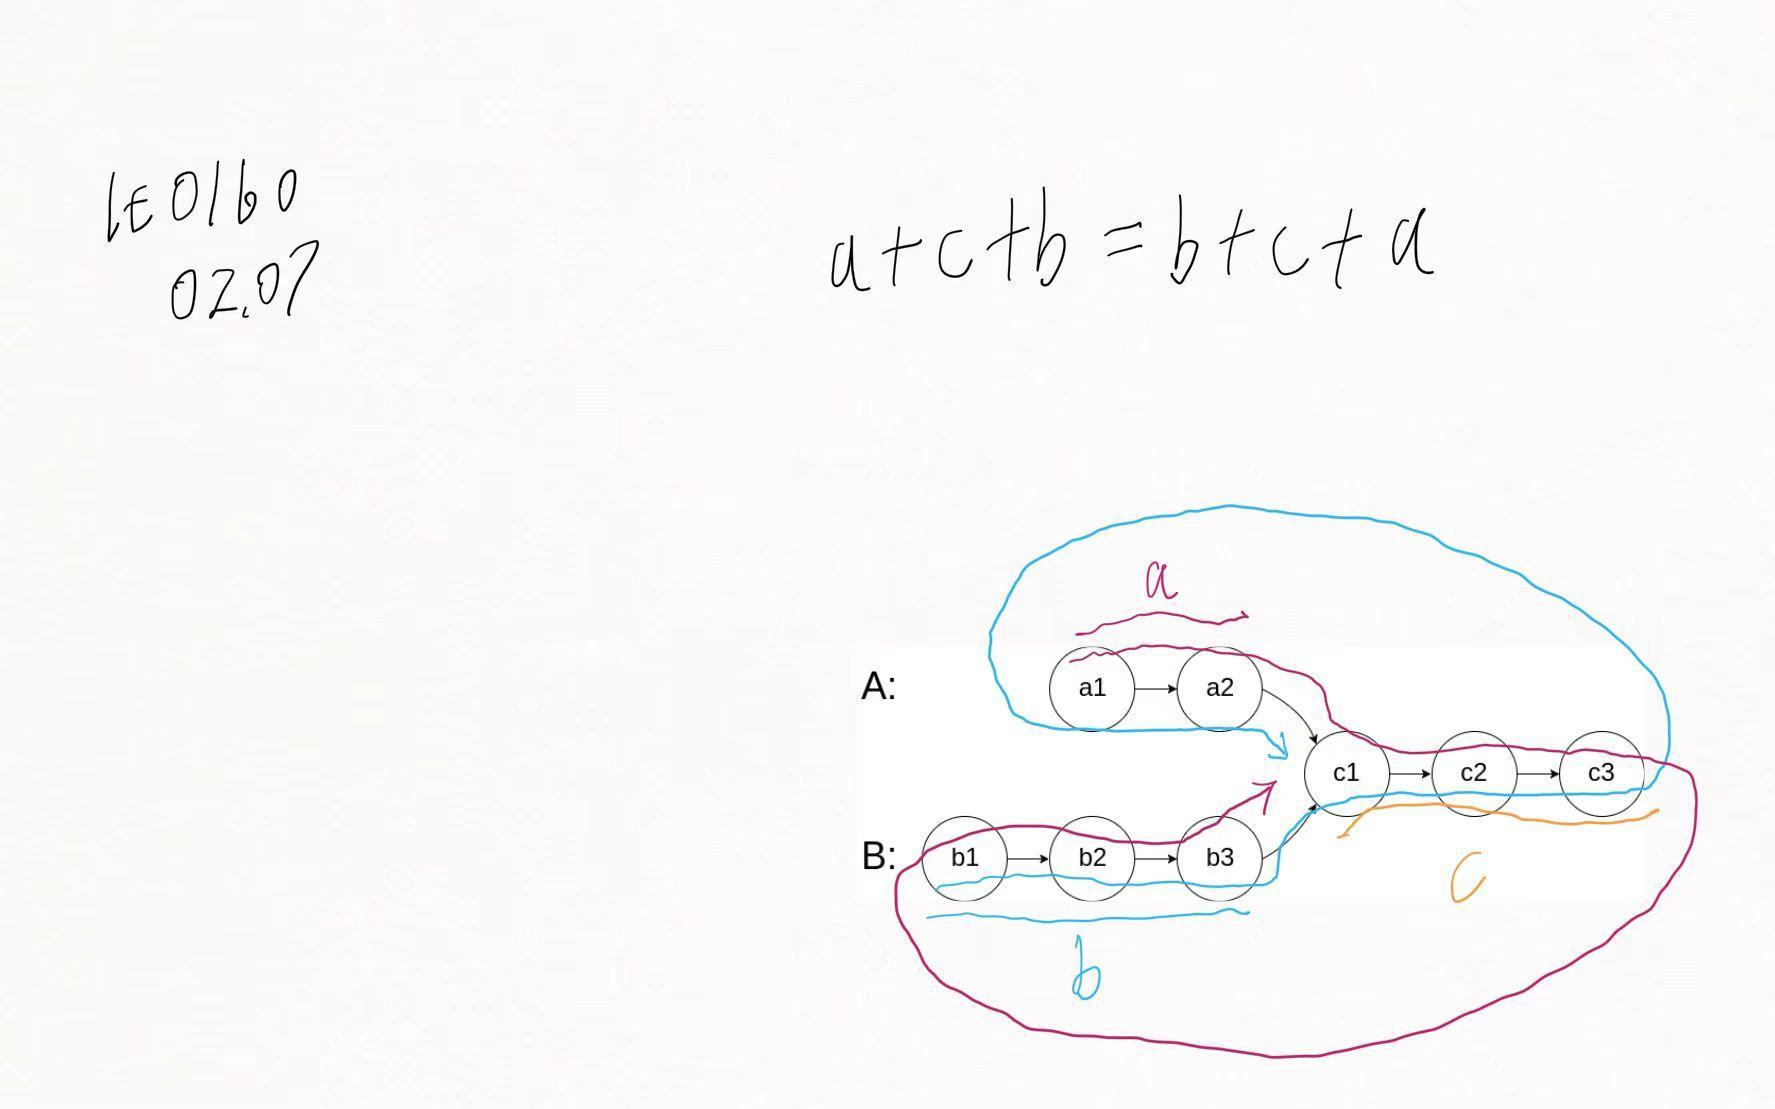 LC 0160
02.07
a+c+b=b+c+a
a
A:
a1
a2
c1
c2
c3
B:
b1
b2
b3
c
b